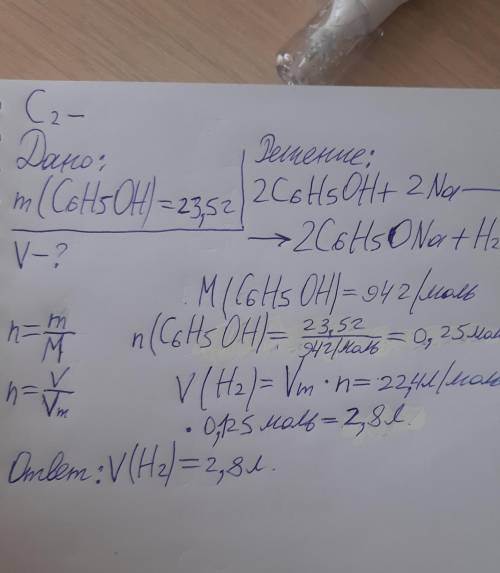 C₂ –
Дано:
m(C6H5OH)=23,5г
V – ?
n = m/M
n = V/Vm
Решение:
2C6H5OH + 2Na —
→ 2C6H5ONa + H₂
M(C6H5OH)=94г/моль
n(C6H5OH)= 23,5г/94г/моль = 0,25мол
V(H₂)= Vm · n = 22,4л/мол
· 0,125 моль = 2,8 л.
Ответ: V(H₂)=2,8л.